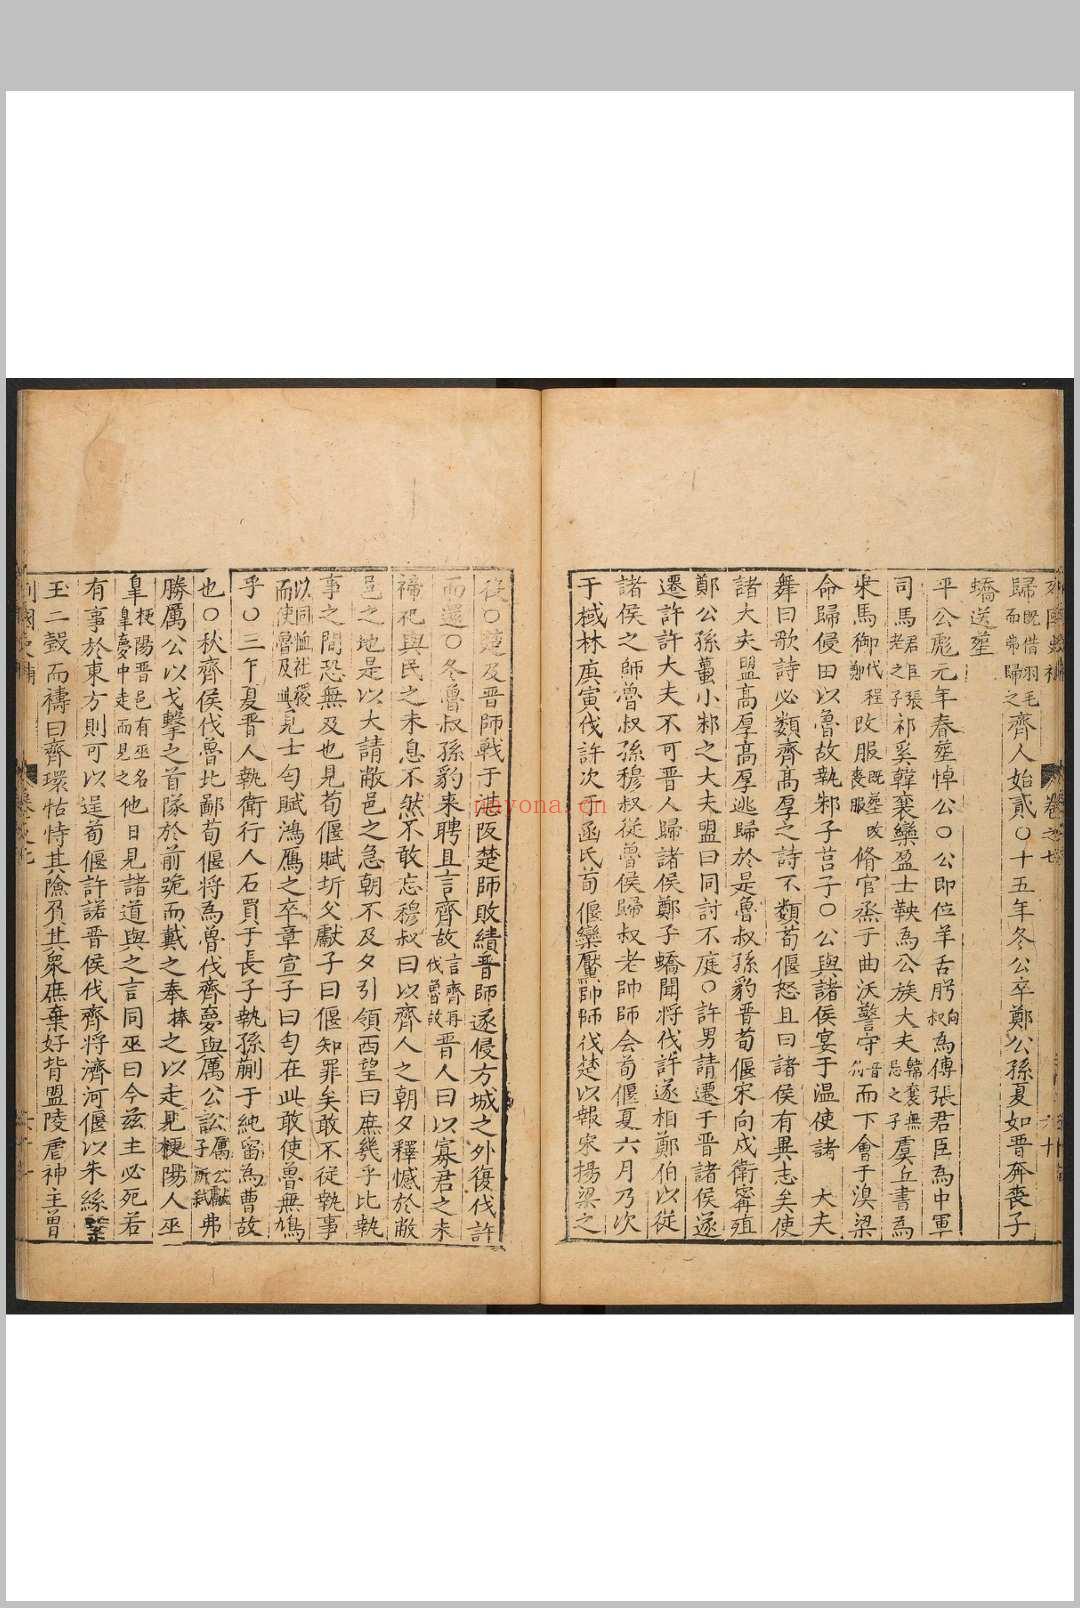 列國史補 卷之七
歸既借羽毛而弗歸之齊人始貳○十五年冬公卒鄭公孫夏如晋奔喪子
蟜送塟
平公彪元年春塟悼公○公即位羊舌肸叔向為傅張君臣為中軍
司馬君臣張老之子祁奚韓襄欒盈士鞅為公族大夫韓襄無忌之子虞丘書為
乗馬御代程鄭攺服既塟攺喪服脩官烝于曲沃警守而下會于溴梁
命歸侵田以魯故執邾子莒子○公與諸侯宴于温使諸大夫
舞曰歌詩必類齊髙厚之詩不類荀偃怒且曰諸侯有異志矣使
諸大夫盟高厚高厚逃歸於是魯叔孫豹晋荀偃宋向戍衛甯殖
鄭公孫蠆小邾之大夫盟曰同討不庭○許男請遷于晋諸侯遂
遷許許大夫不可晋人歸諸侯鄭子蟜聞將伐許遂相鄭伯以從
諸侯之師魯叔孫穆叔從魯侯歸叔老帥師会荀偃夏六月乃次
于棫林庚寅伐許次于函氏荀偃欒黶帥師伐楚以報宋揚梁之
役○楚及晋師戰于湛阪楚師敗績晋師遂侵方城之外復伐許
而還○冬魯叔孫豹来聘且言齊故言齊再伐魯故晋人曰以寡君之未
禘祀與民之未息不然不敢忘穆叔曰以齊人之朝夕釋憾於敝
邑之地是以大請敝邑之急朝不及夕引領西望曰庶幾乎比執
事之間恐無及也見荀偃賦圻父獻子曰偃知罪矣敢不從執事
以同恤社稷而使魯及此見士匄賦鴻鴈之卒章宣子曰匄在此敢使魯無鳩
乎○三年夏晋人執衛行人石買于長子執孫蒯于純留為曹故
也○秋齊侯伐魯北鄙荀偃将為魯伐齊夢與厲公訟厲公獻子所弑弗
勝厲公以戈擊之首隊於前跪而戴之奉捧之以走見梗陽人巫
臯梗陽晋邑有巫名臯夢中走而見之他日見諸道與之言同巫曰今兹主必死若
有事於東方則可以逞荀偃許諾晋侯伐齊将濟河偃以朱絲繫
玉二瑴而禱曰齊環怙恃其險負其衆庶棄好背盟陵虐神主曽
列國史補 卷之七
nayona.cn